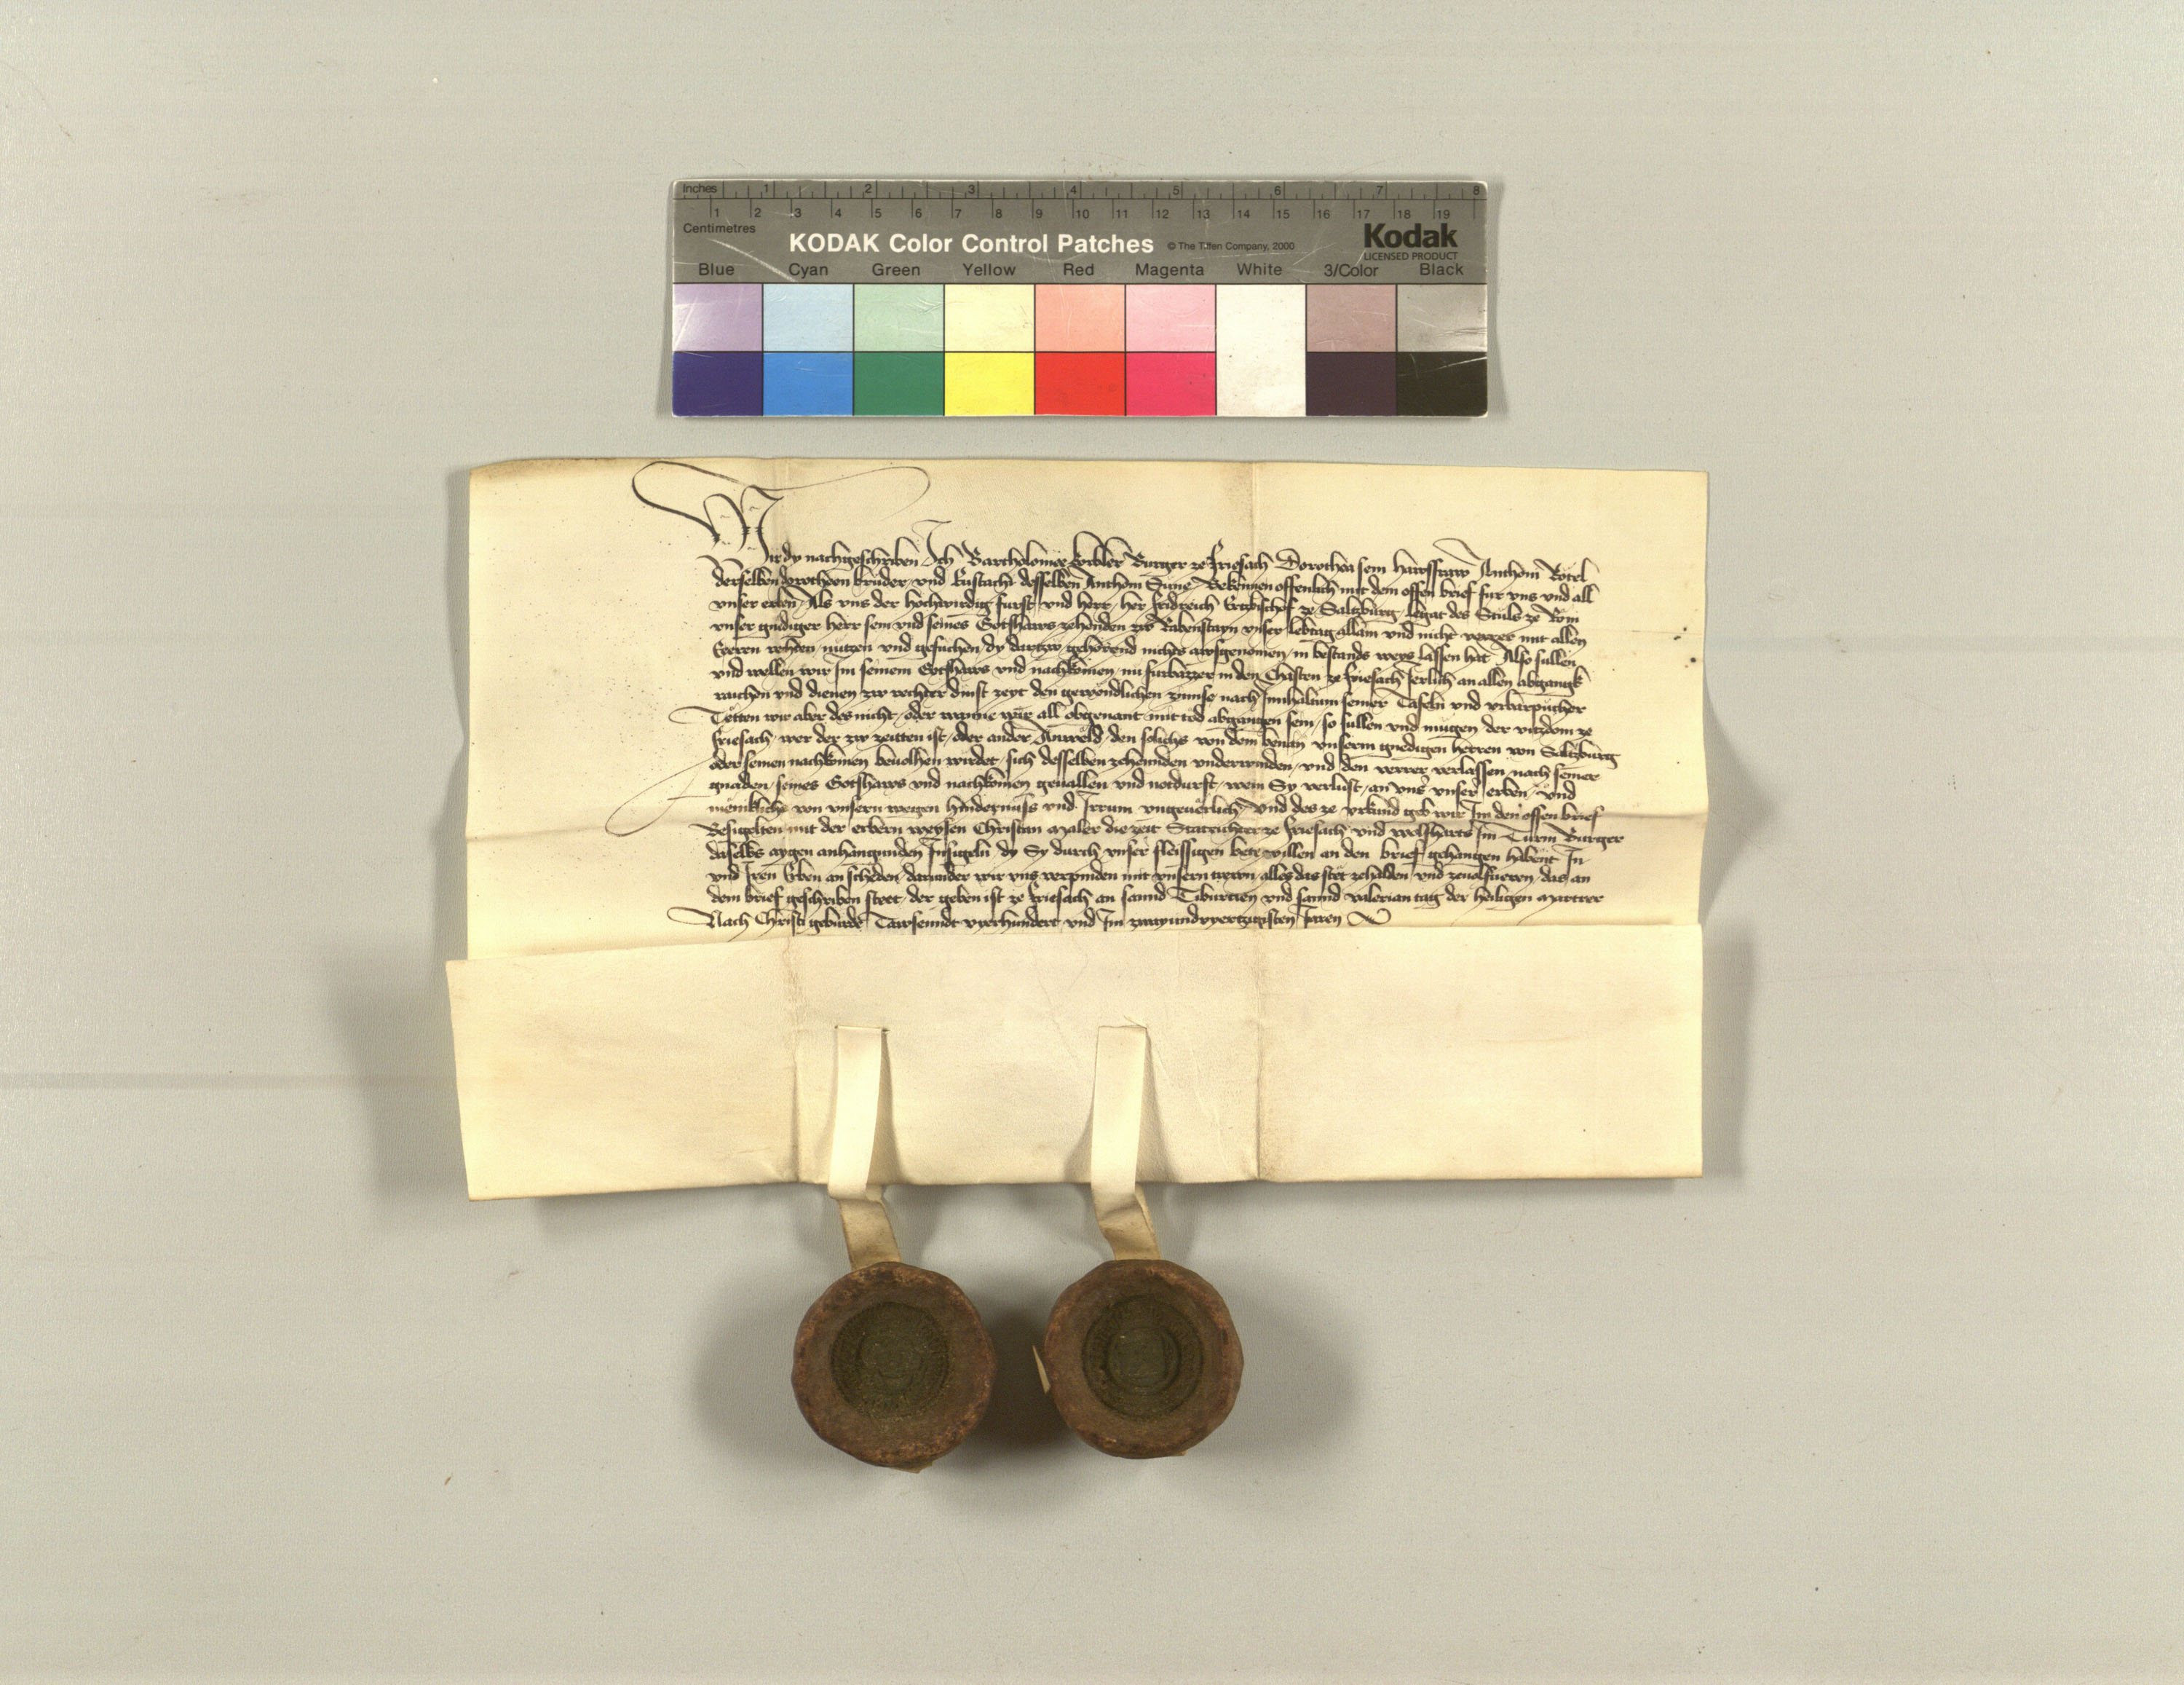 Inches 1 2 3 4 5 6 7 8
1 2 3 4 5 6 7 8 9 10 11 12 13 14 15 16 17 18 19
Centimetres
KODAK Color Control Patches © The Tiffen Company, 2000 Kodak
LICENSED PRODUCT
Blue Cyan Green Yellow Red Magenta White 3/Color Black
Wir dy nachgeschriben Ich Bartholomee Burger ze Friesach Dorothea sein hawsfraw Anthoni Rotel
derselben dorotheen bruder und Eustachi desselben Anthoni Sune Bekennen offenlich mit dem offen brief fur uns und all
unser erben Als uns der hochwirdig furst und herr her fridreich Ertzbischof ze Saltzburg legat des Stuls ze Rom
unser gnediger herr sein und seines Gotshaws zehenden zw Rabenstayn unser lebtag allain und nicht verrer mit allen
Eeren rechten nutzen und gesuchen dy dartzw gehörend nichts awsgenomen in bestands weys lassen hat Also sullen
und wellen wir Im seinem Gotshaws und nachkomen nu furbazzer in den Chasten ze friesach Jerlich an allen abgangk
raichen und dienen zw rechter dinst zeyt den gewondlichen zinnse nach Innhaltum seiner Tafeln und urbarpucher
Tetten wir aber des nicht oder wenne wir all obgenant mit tod abgangen sein so sullen und mugen der vitzdom ze
friesach wer der zw zeitten ist oder ander Anweld den solichs von dem benanten unserm gnedigen herren von Saltzburg
oder seinen nachkomen bevolhen wirdet sich desselben zehennden underwinden und den verrer verlassen nach seiner
gnaden seines Gotshaws und nachkomen gevallen und notdurft wem Sy verlust an uns unser erben und
menikliche von unsern wegen hindernuss und Irrum ungeverlich Und des ze urkund geb wir Im den offen brief
Besigelten mit der erbern weysen Christan Maler die zeit Statrichter ze friesach und wolfharts Im Turm Burger
daselbs aygen anhangunden Insigeln dy Sy durch unser fleissigen bete willen an den brief gehangen habent In
und Iren Erben an scheden darunder wir uns verpinden mit unsern trewn alles das stet zehalden und zevolfueren das an
dem brief geschriben stett der geben ist ze friesach an sannd Tiburcien und sannd valerian tag der heiligen Martrer
Nach Christi geburde Tawsenndt vyerhundert und Im zwayundvyertzigisten Jaren